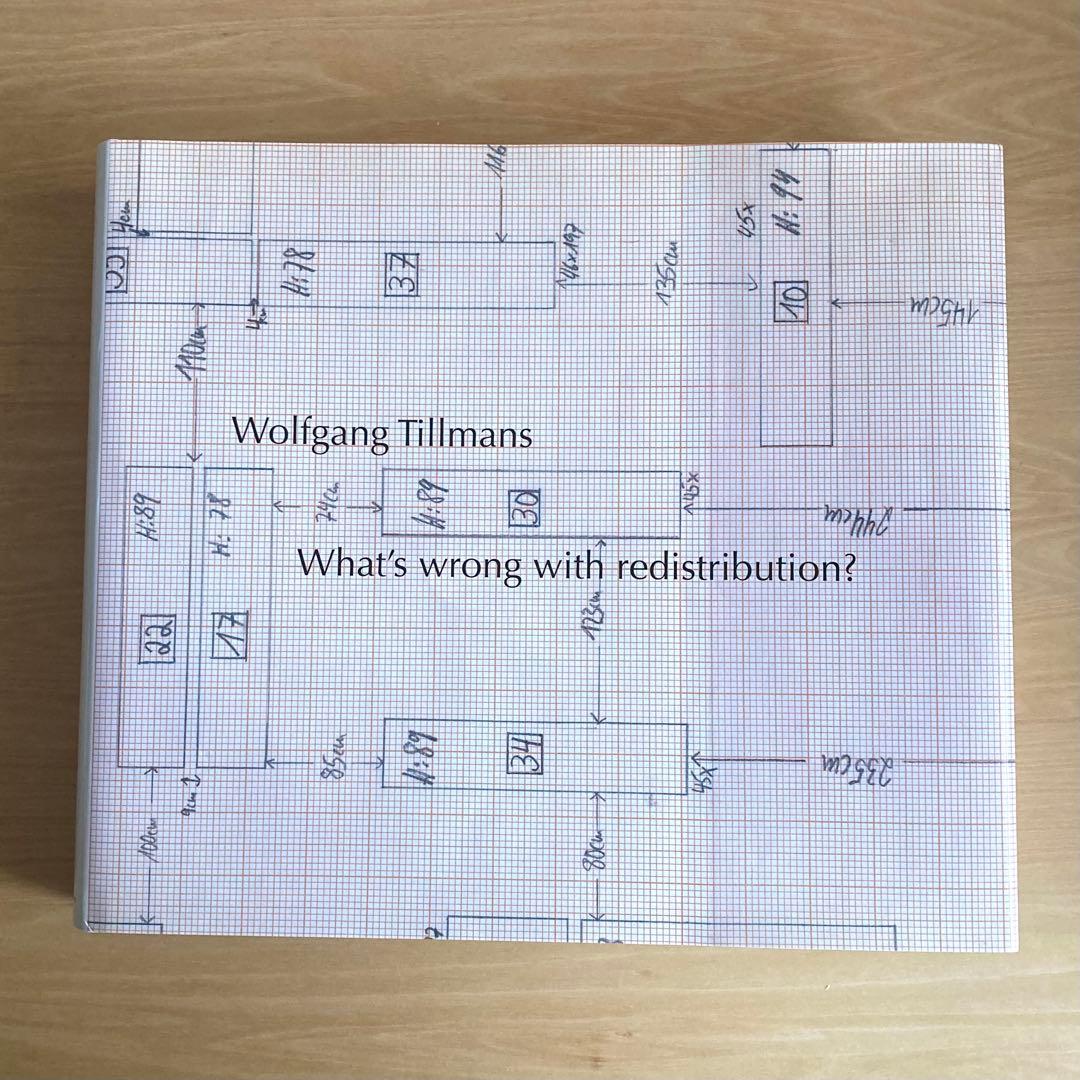 4cm
116
H: 94
45x
H:78
37
146x197
135cm
10
145cm
4cm
110cm
Wolfgang Tillmans
H:89
H: 78
74cm
H:89
30
145x
244cm
What's wrong with redistribution?
22
17
123cm
85cm
H:89
34
45x
235cm
9cm
100cm
80cm